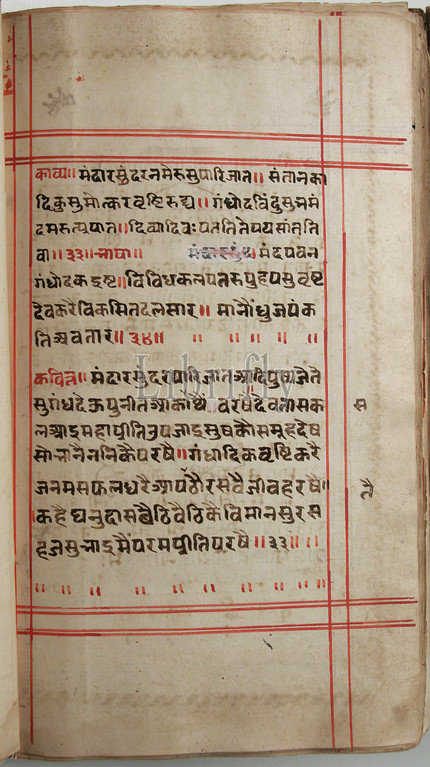 काव्य॥ मंदारसुंदरनमेरुसुपारिजात॥ संतानका
दिकुसुमोत्करवृष्टिरुद्धा॥ गंधोदबिंदुसुभमं
दमरुत्प्रपाता॥ दिव्यादिवः पततितेवयसांतति
र्वा॥३३॥ भाषा॥ मंदपवन
गंधोदकइष्ट॥ विविधकलपतरुपुहपसुवृष्ट
देवकरैविकसितदलसार॥ मानौ पंक
तिअवतार॥३४॥ ॥ ॥ ॥ ॥
कवित्त॥ मंदारसुंदरपारिजातआदिपुष्पजेते
सुगंधदेऊपुनीतआकाथैं वरषदेवतासक
लआइमहाप्रीतिउपजाइसुषकौसमूहदेष
नैननिकेपरषै॥ गंधादिकवृष्टिकरै
जनमसफलधरैआपठौरसवैजीवहरषै॥
कहैधनुदाससवैठिवैठिकैविमानसुरस
हजसुभाइमैंपरमप्रीतिपरषै॥३३॥ ॥
॥ ॥ ॥ ॥ ॥ ॥ ॥ ॥ ॥
स
तै
Librifly